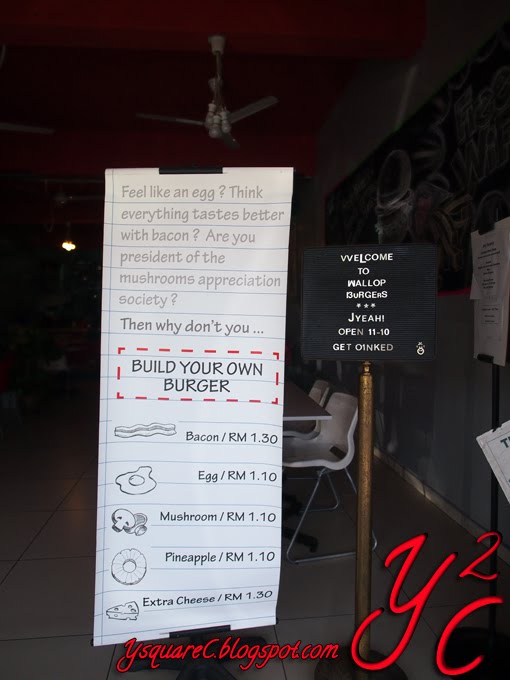 Feel like an egg ? Think
everything tastes better
with bacon ? Are you
president of the
mushrooms appreciation
society ?
Then why don't you ...
BUILD YOUR OWN
BURGER
Bacon / RM 1.30
Egg / RM 1.10
Mushroom / RM 1.10
Pineapple / RM 1.10
Extra Cheese / RM 1.30
VVELCOME
TO
WALLOP
BURGERS
***
JYEAH!
OPEN 11-10
GET OINKED
Y2C
YsquareC.blogspot.com